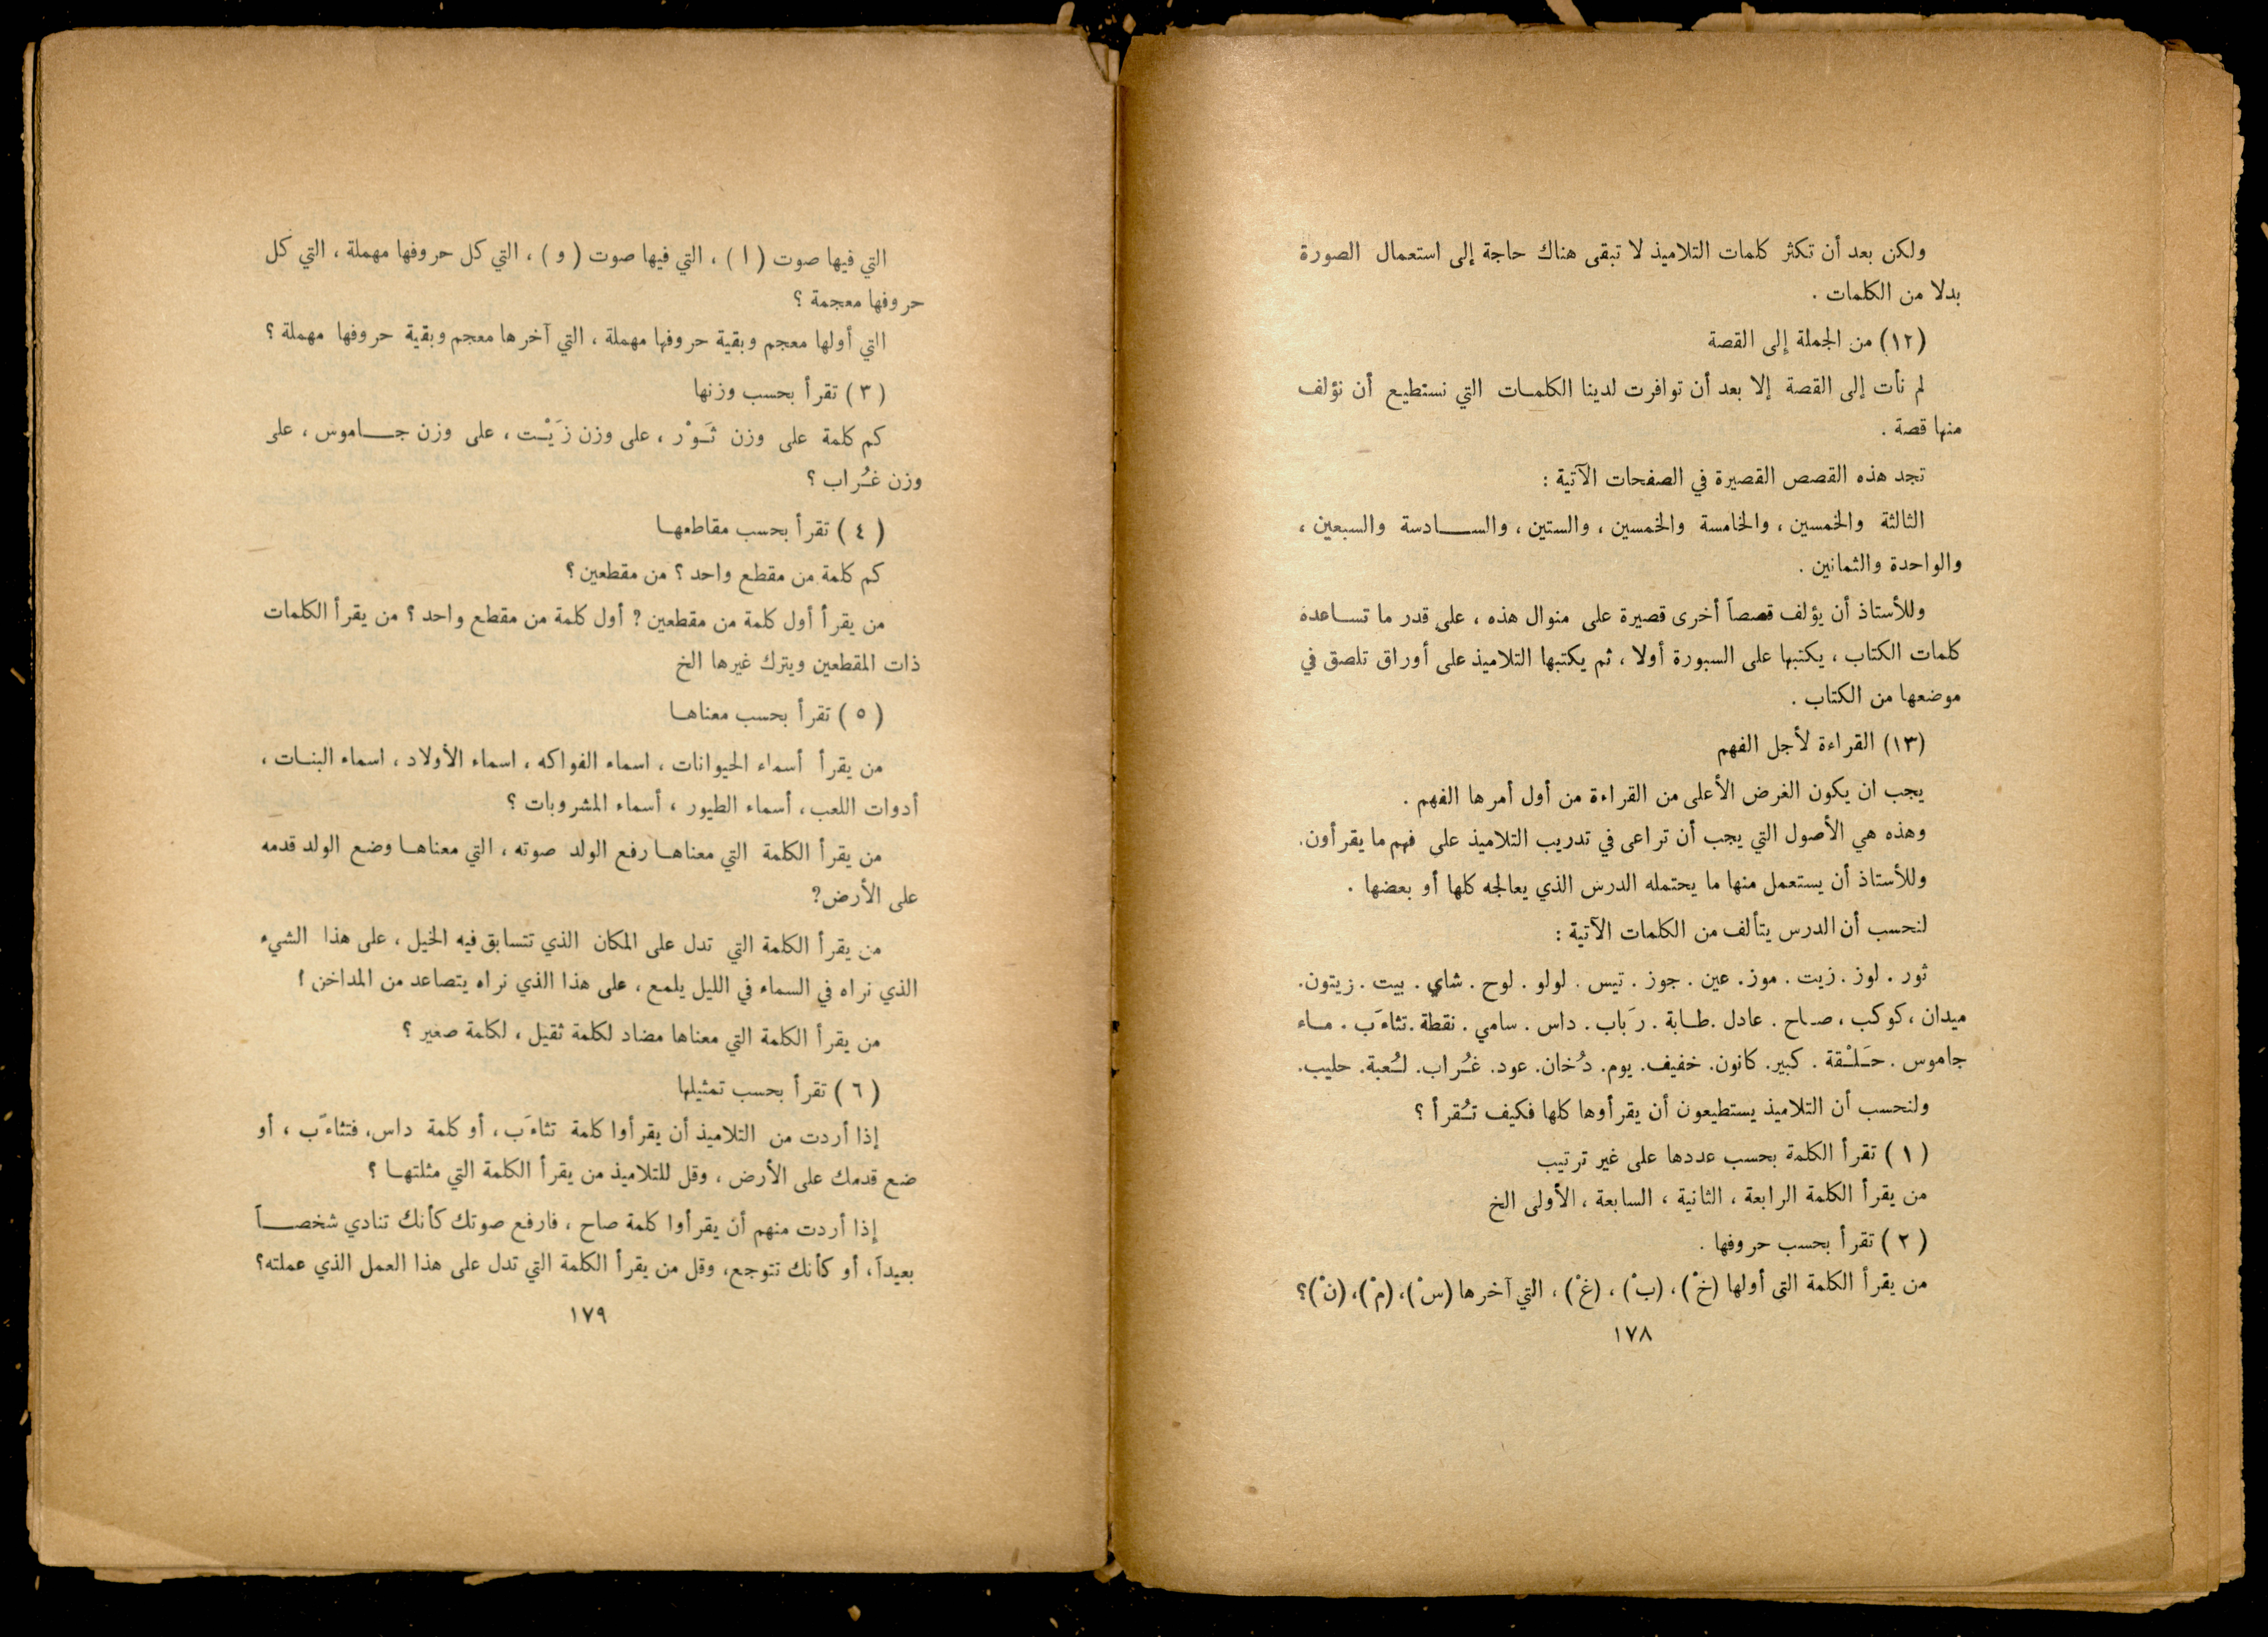 ولكن بعد أن تكثر كلمات التلاميذ لا تبقى هناك حاجة إلى استعمال الصورة
بدلا من الكلمات .
(١٢) من الجملة إلى القصة
لم نأت إلى القصة إلا بعد أن توافرت لدينا الكلمات التي نستطيع أن نؤلف
منها قصة .
تجد هذه القصص القصيرة في الصفحات الآتية :
الثالثة والخمسين ، والخامسة والخمسين ، والستين ، والسادسة والسبعين ،
والواحدة والثمانين .
وللأستاذ أن يؤلف قصصاً أخرى قصيرة على منوال هذه ، على قدر ما تساعده
كلمات الكتاب ، يكتبها على السبورة أولا ، ثم يكتبها التلاميذ على أوراق تلصق في
موضعها من الكتاب .
(١٣) القراءة لأجل الفهم
يجب ان يكون الغرض الأعلى من القراءة من أول أمرها الفهم .
وهذه هي الأصول التي يجب أن تراعى في تدريب التلاميذ على فهم ما يقرأون.
وللأستاذ أن يستعمل منها ما يحتمله الدرس الذي يعالجه كلها أو بعضها .
لنحسب أن الدرس يتألف من الكلمات الآتية :
ثور . لوز . زيت . موز . عين . جوز . تيس . لولو . لوح . شاي . بيت . زيتون.
ميدان ، كوكب ، صاح . عادل . طابة . رَباب . داس . سامي . نقطة . تثاءَب . ماء
جاموس . حَلْقة . كبير . كانون . خفيف . يوم . دُخان . عود . غُراب . لُعبة . حليب.
ولنحسب أن التلاميذ يستطيعون أن يقرأوها كلها فكيف تُقرأ ؟
( ١ ) تقرأ الكلمة بحسب عددها على غير ترتيب
من يقرأ الكلمة الرابعة ، الثانية ، السابعة ، الأولى الخ
( ٢ ) تقرأ بحسب حروفها .
من يقرأ الكلمة التي أولها (خْ) ، (بْ) ، (غْ) ، التي آخرها (سْ) ، (مْ) ، (نْ)؟
١٧٨
التي فيها صوت ( ا ) ، التي فيها صوت ( و ) ، التي كل حروفها مهملة ، التي كل
حروفها معجمة ؟
التي أولها معجم وبقية حروفها مهملة ، التي آخرها معجم وبقية حروفها مهملة ؟
( ٣ ) تقرأ بحسب وزنها
كم كلمة على وزن ثَوْر ، على وزن زَيْت ، على وزن جاموس ، على
وزن غُراب ؟
( ٤ ) تقرأ بحسب مقاطعها
كم كلمة من مقطع واحد ؟ من مقطعين ؟
من يقرأ أول كلمة من مقطعين ? أول كلمة من مقطع واحد ؟ من يقرأ الكلمات
ذات المقطعين ويترك غيرها الخ
( ٥ ) تقرأ بحسب معناها
من يقرأ أسماء الحيوانات ، اسماء الفواكه ، اسماء الأولاد ، اسماء البنات ،
أدوات اللعب ، أسماء الطيور ، أسماء المشروبات ؟
من يقرأ الكلمة التي معناها رفع الولد صوته ، التي معناها وضع الولد قدمه
على الأرض?
من يقرأ الكلمة التي تدل على المكان الذي تتسابق فيه الخيل ، على هذا الشيء
الذي نراه في السماء في الليل يلمع ، على هذا الذي نراه يتصاعد من المداخن ؟
من يقرأ الكلمة التي معناها مضاد لكلمة ثقيل ، لكلمة صغير ؟
( ٦ ) تقرأ بحسب تمثيلها
إذا أردت من التلاميذ أن يقرأوا كلمة تثاءَب ، أو كلمة داس، فتثاءَب ، أو
ضع قدمك على الأرض ، وقل للتلاميذ من يقرأ الكلمة التي مثلتها ؟
إذا أردت منهم أن يقرأوا كلمة صاح ، فارفع صوتك كأنك تنادي شخصاً
بعيداً ، أو كأنك تتوجع، وقل من يقرأ الكلمة التي تدل على هذا العمل الذي عملته؟
١٧٩